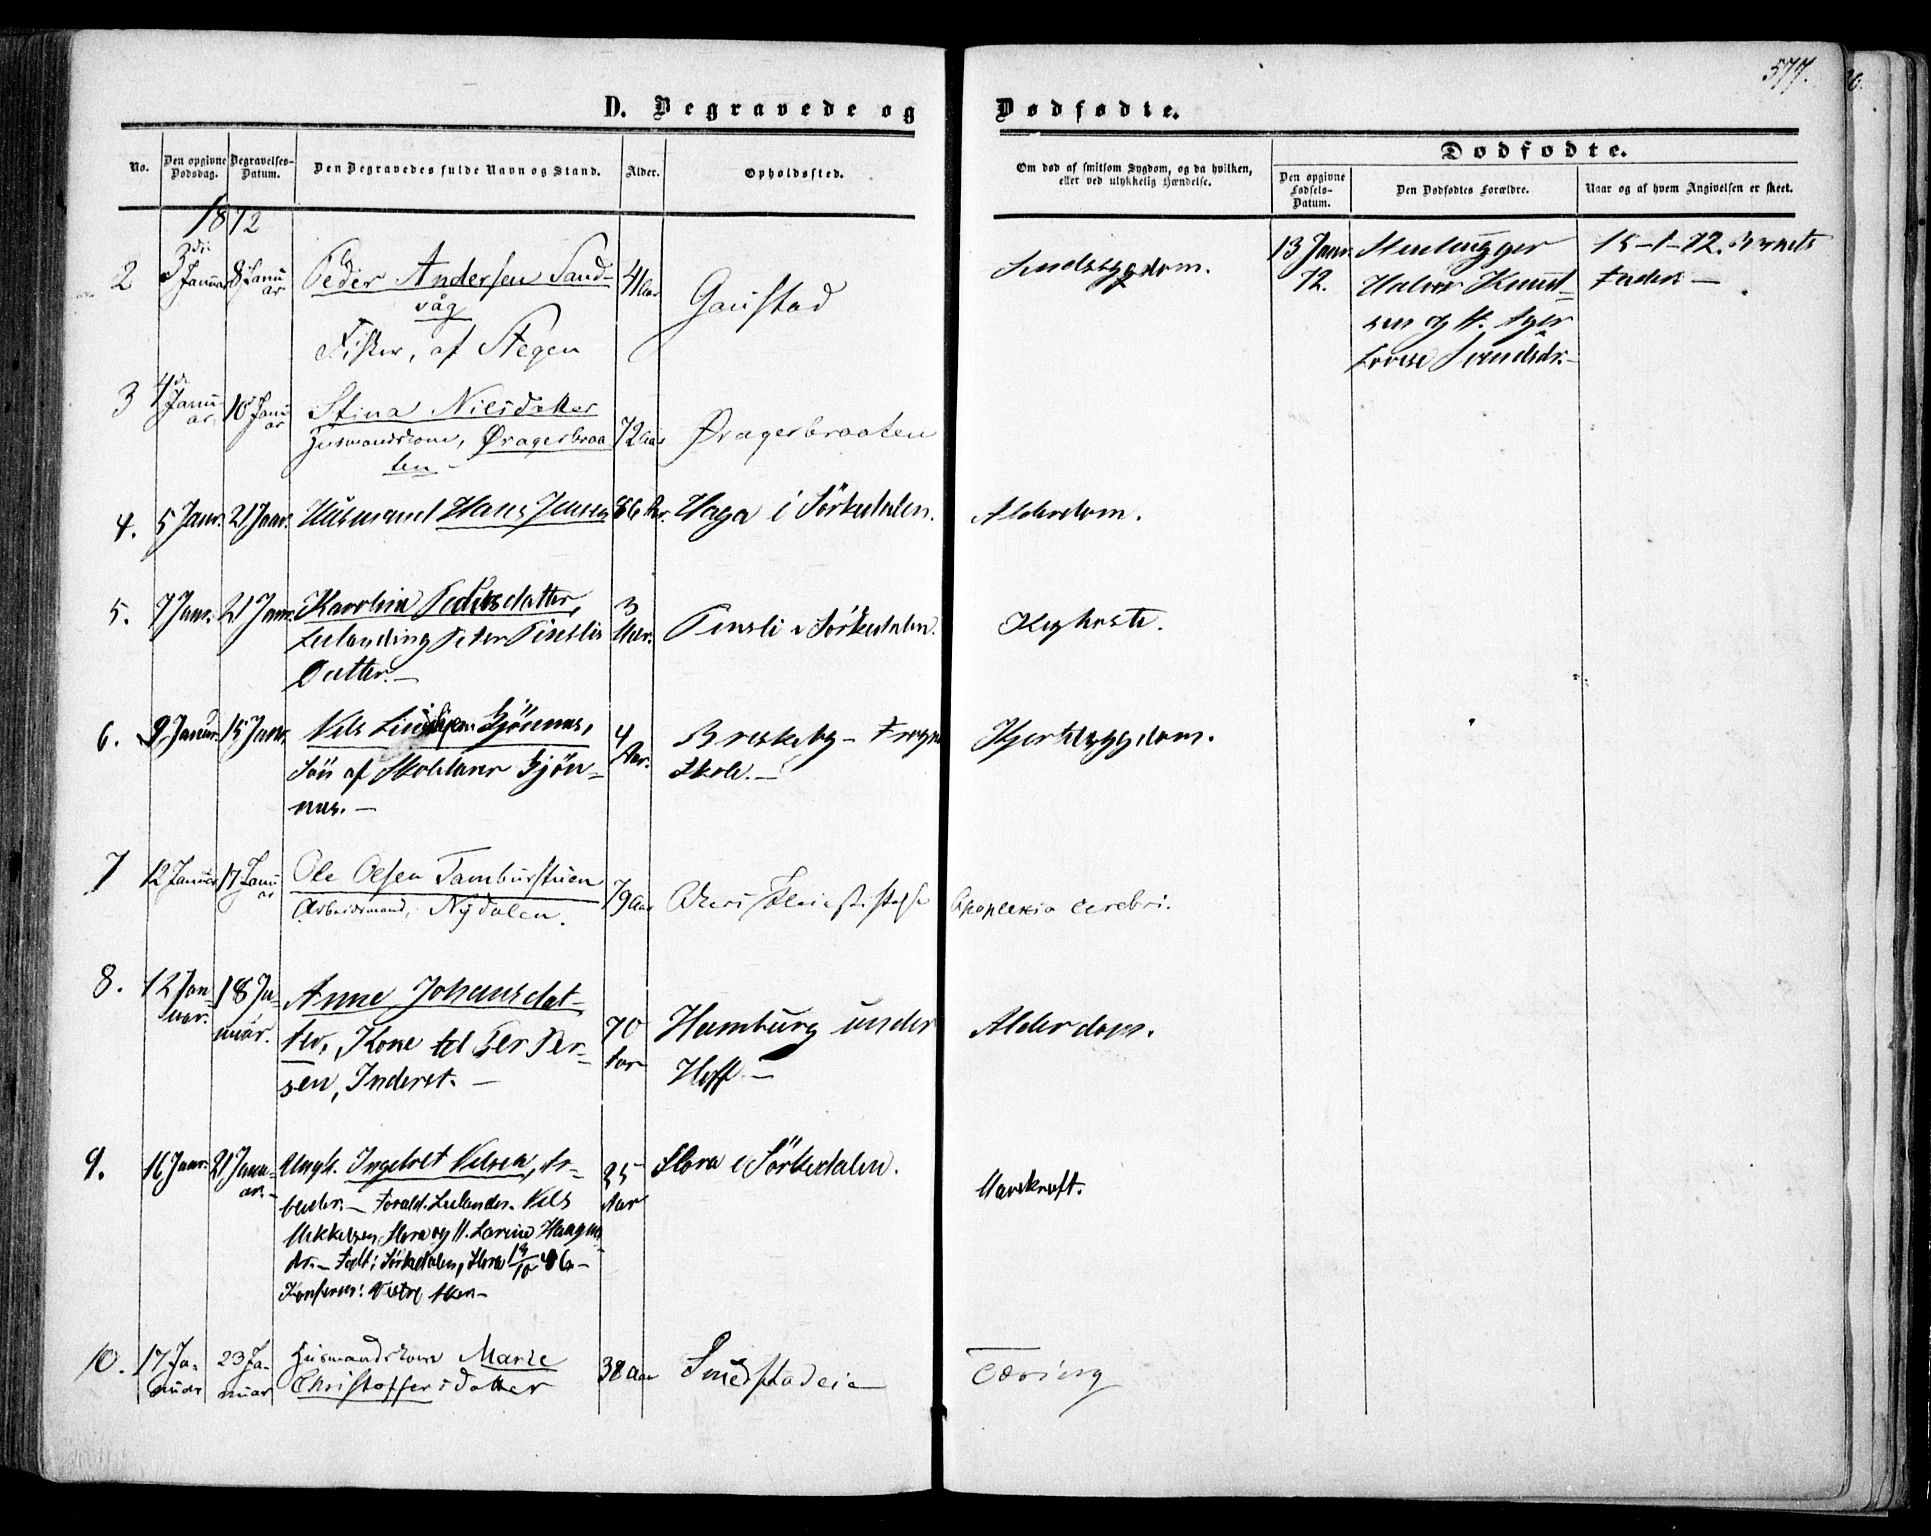 577.
D. Begravede og Dødfødte.
No.
Den opgivne Dødsdag.
Begravelses-Datum.
Den Begravedes fulde Navn og Stand.
Alder.
Opholdssted.
Om død af smitsom Sygdom, og da hvilken, eller ved ulykkelig Hændelse.
Dødfødte.
Den opgivne Fødsels-Datum.
Den Dødfødtes Forældre.
Naar og af hvem Angivelsen er skeet.
1872
2
3die Januar
8 Januar
Peder Andersen Sand-
våg
Fisker, af Stegen
41 Aar
Gaustad
Sindssygdom.
13 Janr.
72.
Halvor Knud-
sen og H.
Lovise
15-1-72. Barnets
Fader. —
3
4de Januar.
10 Januar
Stina Nilsdatter
Husmandskone, Øragerbraa
ten
72 Aar
Øragerbraaten
4.
5 Janr.
21 Janr.
Husmand Hans Jensen
86 Ar.
Haga i Sörkedalen.
Alderdom.
5.
7 Janr.
21 Janr.
Karoline Pedersdatter,
Leilending Peter Tinslis
Datter. —
3
Tinsli i Sörkedalen.
Kighoste.
6.
9 Januar.
15 Janr.
Nils Gjönnes,
Sön af Skolelærer Gjön-
nes. —
4
Aar.
Briskeby - Frogn
Skole. —
Hjertesygdom.
7
12 Januar
17 Januar
Ole Olsen Tamburstuen
Arbeidsmand, Nydalen.
79 Aar
Apoplexia cerebri.
8.
12 Jan-
uar.
18 Ja-
nuar.
Anne Johansdat-
ter, Kone til Per Per-
sen, Inderst. —
70
Aar
Hamburg under
Hoff —
Alderdom.
9.
16 Janr.
21 Janu-
ar.
Ungk. Ingebret Nilsen, Ar-
beider. — Foræld. Leilænder. Nils
Mikkelsen Slora og H. Larine Haagens
dr. — Født i Sörkedalen, Slora 19/10 46 —
Konferm: Vestre Aker —
25
Aar
Slora i Sörkedalen.
Halskræft.
10.
17 Ja-
nuar
23 Ja-
nuar
Husmandskone Marie
Christoffersdatter
38 Aar
Smedstadeie
Tæring